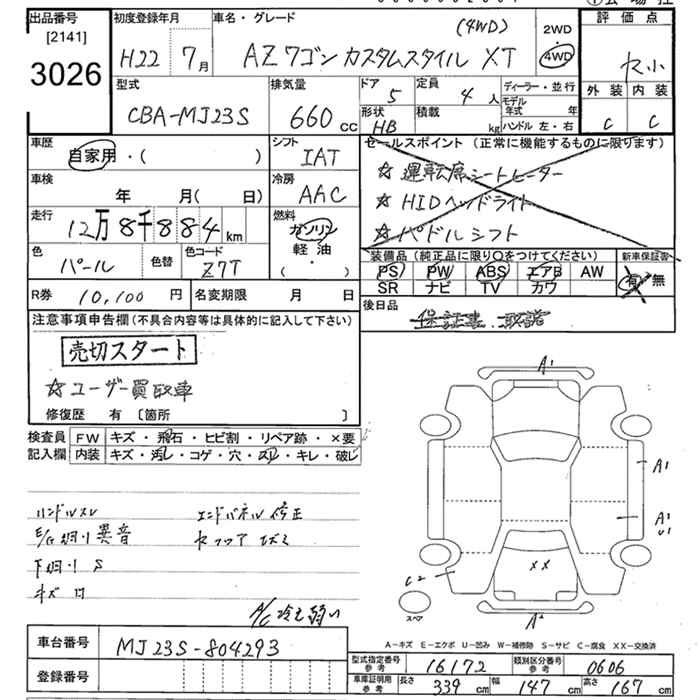 出品番号
[2141]
3026
初度登録年月
H22 7月
車名・グレード
(4WD)
AZワゴン カスタムスタイル XT
2WD
4WD
評価点
セ小
外装 内装
C C
型式
CBA-MJ23S
排気量
660cc
ドア
5
形状
HB
定員
4人
積載
kg
ディーラー・並行
モデル年式 年
ハンドル 左・右
車歴
自家用・( )
シフト
IAT
車検
年 月( 日)
冷房
AAC
走行
12万8千884km
燃料
ガソリン
軽油
( )
色
パール
色替
色コード
Z7T
R券 10,100円
名変期限 月 日
セールスポイント (正常に機能するものに限ります)
☆ 運転席シートヒーター
☆ HIDヘッドライト
☆ パドルシフト
装備品(純正品に限り○をつけてください)
新車保証書
PS PW ABS エアB AW
SR ナビ TV カワ
有・無
後日品
保証書、取説
注意事項申告欄(不具合内容等は具体的に記入して下さい)
売切スタート
☆ユーザー買取車
修復歴 有 〔箇所 〕
検査員記入欄
FW キズ・飛石・ヒビ割・リペア跡・×要
内装 キズ・汚レ・コゲ・穴・スリ・キレ・破レ
ハンドルスレ
エンドパネル修正
E/G廻り異音
下廻りS
A/C冷え弱い
A1
A1
A1
U1
XX
C2
スペア
A2
A-キズ E-エクボ U-凹み W-補修跡 S-サビ C-腐食 XX-交換済
車台番号 MJ23S-804293
登録番号
型式指定番号参考 16172
類別区分番号参考 0606
車庫証明用参考 長さ 339cm 幅 147cm 高さ 167cm